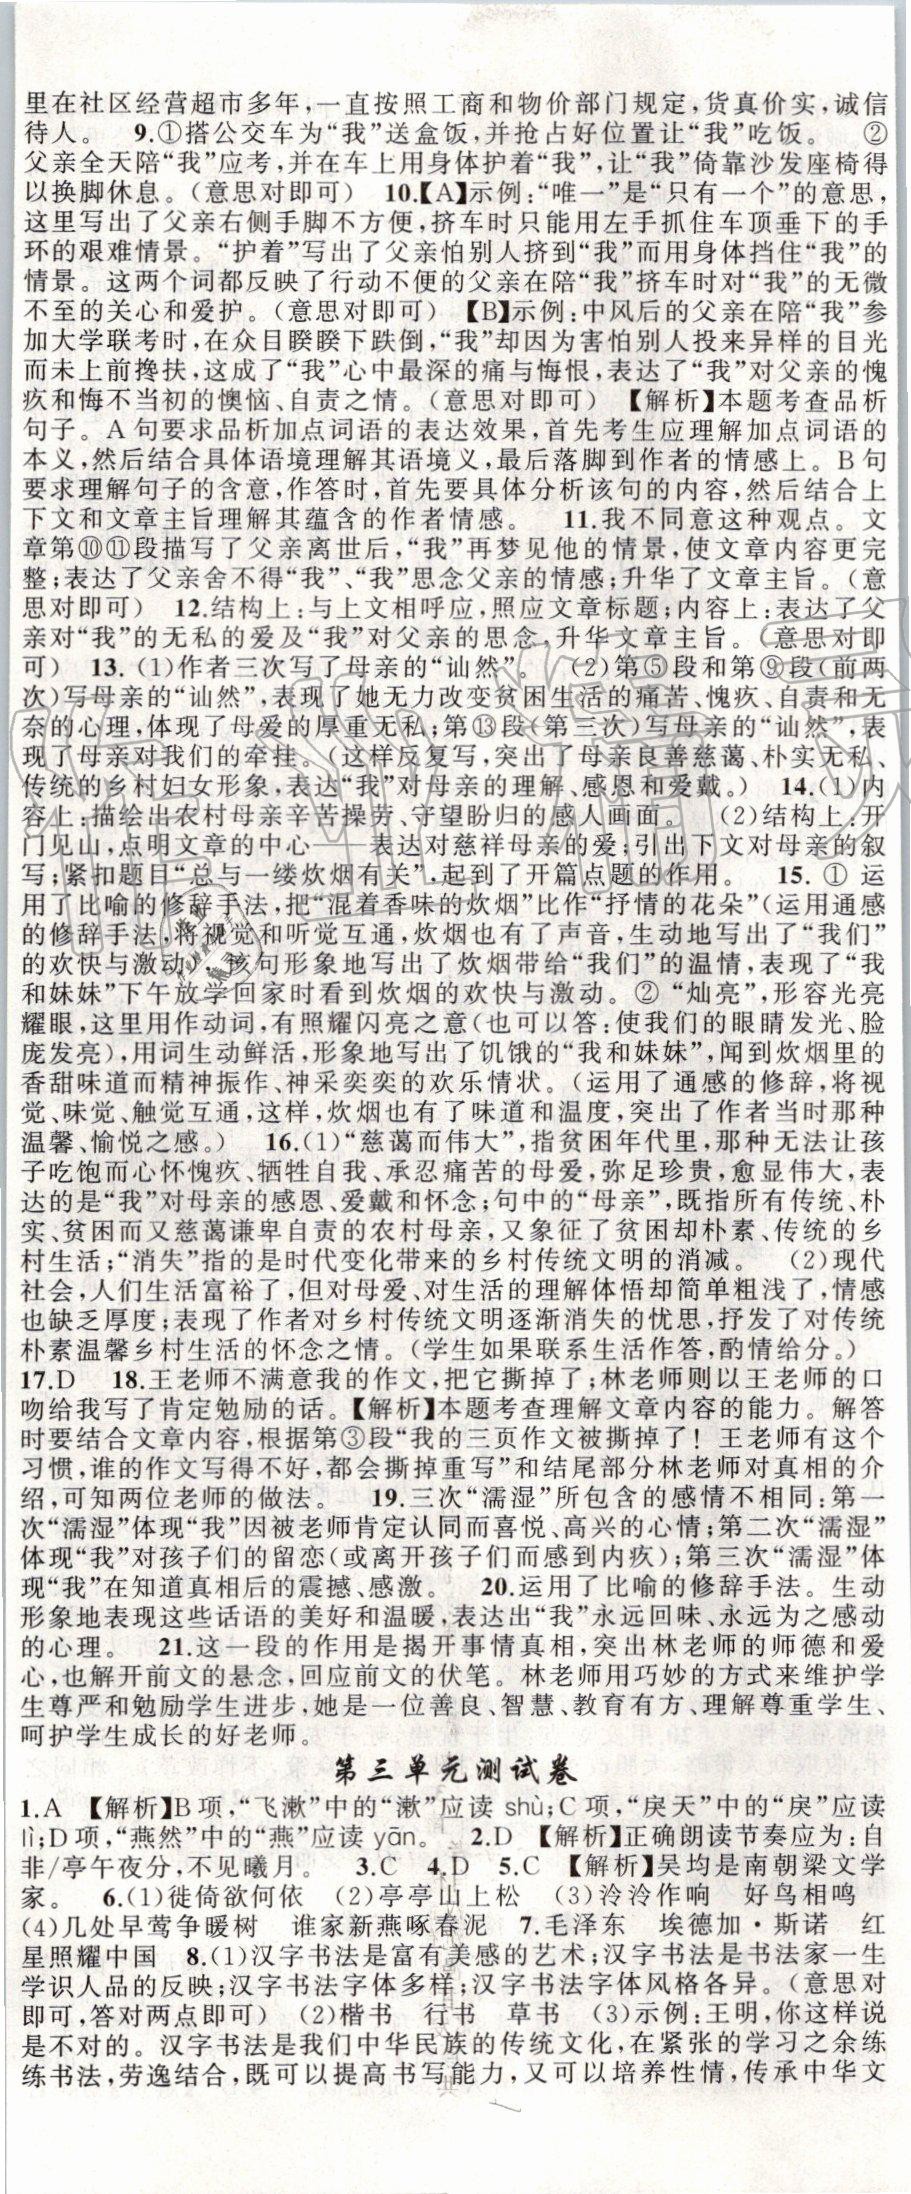 里在社区经营超市多年,一直按照工商和物价部门规定,货真价实,诚信
待人。 9.①搭公交车为“我”送盒饭,并抢占好位置让“我”吃饭。 ②
父亲全天陪“我”应考,并在车上用身体护着“我”,让“我”倚靠沙发座椅得
以换脚休息。(意思对即可) 10.【A】示例:“唯一”是“只有一个”的意思,
这里写出了父亲右侧手脚不方便,挤车时只能用左手抓住车顶垂下的手
环的艰难情景。“护着”写出了父亲怕别人挤到“我”而用身体挡住“我”的
情景。这两个词都反映了行动不便的父亲在陪“我”挤车时对“我”的无微
不至的关心和爱护。(意思对即可) 【B】示例:中风后的父亲在陪“我”参
加大学联考时,在众目睽睽下跌倒,“我”却因为害怕别人投来异样的目光
而未上前搀扶,这成了“我”心中最深的痛与悔恨,表达了“我”对父亲的愧
疚和悔不当初的懊恼、自责之情。(意思对即可) 【解析】本题考查品析
句子。A 句要求品析加点词语的表达效果,首先考生应理解加点词语的
本义,然后结合具体语境理解其语境义,最后落脚到作者的情感上。B 句
要求理解句子的含意,作答时,首先要具体分析该句的内容,然后结合上
下文和文章主旨理解其蕴含的作者情感。 11.我不同意这种观点。文
章第⑩⑪段描写了父亲离世后,“我”再梦见他的情景,使文章内容更完
整;表达了父亲舍不得“我”、“我”思念父亲的情感;升华了文章主旨。(意
思对即可) 12.结构上:与上文相呼应,照应文章标题;内容上:表达了父
亲对“我”的无私的爱及“我”对父亲的思念,升华文章主旨。(意思对即
可) 13.(1)作者三次写了母亲的“讪然”。 (2)第⑤段和第⑨段(前两
次)写母亲的“讪然”,表现了她无力改变贫困生活的痛苦、愧疚、自责和无
奈的心理,体现了母爱的厚重无私;第⑬段(第三次)写母亲的“讪然”,表
现了母亲对我们的牵挂。(这样反复写,突出了母亲良善慈蔼、朴实无私、
传统的乡村妇女形象,表达“我”对母亲的理解、感恩和爱戴。) 14.(1)内
容上:描绘出农村母亲辛苦操劳、守望盼归的感人画面。 (2)结构上:开
门见山,点明文章的中心——表达对慈祥母亲的爱;引出下文对母亲的叙
写;紧扣题目“总与一缕炊烟有关”,起到了开篇点题的作用。 15.① 运
用了比喻的修辞手法,把“混着香味的炊烟”比作“抒情的花朵”(运用通感
的修辞手法,将视觉和听觉互通,炊烟也有了声音,生动地写出了“我们”
的欢快与激动),该句形象地写出了炊烟带给“我们”的温情,表现了“我
和妹妹”下午放学回家时看到炊烟的欢快与激动。② “灿亮”,形容光亮
耀眼,这里用作动词,有照耀闪亮之意(也可以答:使我们的眼睛发光、脸
庞发亮),用词生动鲜活,形象地写出了饥饿的“我和妹妹”,闻到炊烟里的
香甜味道而精神振作、神采奕奕的欢乐情状。(运用了通感的修辞,将视
觉、味觉、触觉互通,这样,炊烟也有了味道和温度,突出了作者当时那种
温馨、愉悦之感。) 16.(1)“慈蔼而伟大”,指贫困年代里,那种无法让孩
子吃饱而心怀愧疚、牺牲自我、承忍痛苦的母爱,弥足珍贵,愈显伟大,表
达的是“我”对母亲的感恩、爱戴和怀念;句中的“母亲”,既指所有传统、朴
实、贫困而又慈蔼谦卑自责的农村母亲,又象征了贫困却朴素、传统的乡
村生活;“消失”指的是时代变化带来的乡村传统文明的消减。 (2)现代
社会,人们生活富裕了,但对母爱、对生活的理解体悟却简单粗浅了,情感
也缺乏厚度;表现了作者对乡村传统文明逐渐消失的忧思,抒发了对传统
朴素温馨乡村生活的怀念之情。(学生如果联系生活作答,酌情给分。)
17.D 18.王老师不满意我的作文,把它撕掉了;林老师则以王老师的口
吻给我写了肯定勉励的话。【解析】本题考查理解文章内容的能力。解答
时要结合文章内容,根据第③段“我的三页作文被撕掉了! 王老师有这个
习惯,谁的作文写得不好,都会撕掉重写”和结尾部分林老师对真相的介
绍,可知两位老师的做法。 19.三次“濡湿”所包含的感情不相同:第一
次“濡湿”体现“我”因被老师肯定认同而喜悦、高兴的心情;第二次“濡湿”
体现“我”对孩子们的留恋(或离开孩子们而感到内疚);第三次“濡湿”体
现“我”在知道真相后的震撼、感激。 20.运用了比喻的修辞手法。生动
形象地表现这些话语的美好和温暖,表达出“我”永远回味、永远为之感动
的心理。 21.这一段的作用是揭开事情真相,突出林老师的师德和爱
心,也解开前文的悬念,回应前文的伏笔。林老师用巧妙的方式来维护学
生尊严和勉励学生进步,她是一位善良、智慧、教育有方、理解尊重学生、
呵护学生成长的好老师。
第三单元测试卷
1.A 【解析】B 项,“飞漱”中的“漱”应读 shù;C 项,“戾天”中的“戾”应读
lì;D 项,“燕然”中的“燕”应读 yān。 2.D 【解析】正确朗读节奏应为:自
非/亭午夜分,不见曦月。 3.C 4.D 5.C 【解析】吴均是南朝梁文学
家。 6.(1)徙倚欲何依 (2)亭亭山上松 (3)泠泠作响 好鸟相鸣
(4)几处早莺争暖树 谁家新燕啄春泥 7.毛泽东 埃德加·斯诺 红
星照耀中国 8.(1)汉字书法是富有美感的艺术;汉字书法是书法家一生
学识人品的反映;汉字书法字体多样;汉字书法字体风格各异。(意思对
即可,答对两点即可) (2)楷书 行书 草书 (3)示例:王明,你这样说
是不对的。汉字书法是我们中华民族的传统文化,在紧张的学习之余练
练书法,劳逸结合,既可以提高书写能力,又可以培养性情,传承中华文